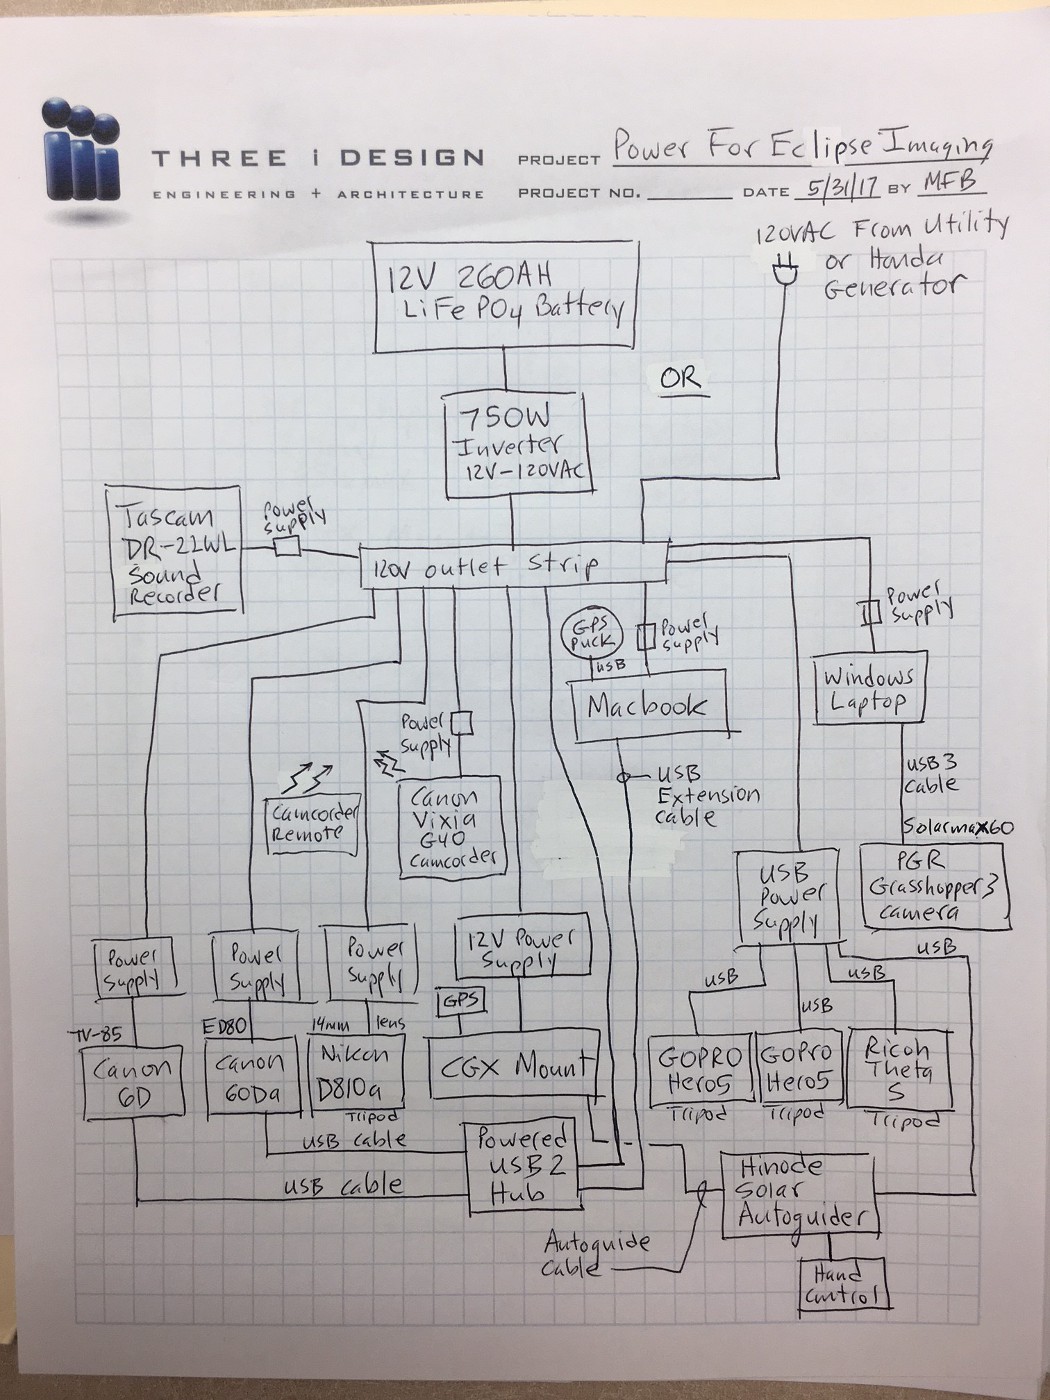 THREE i DESIGN
ENGINEERING + ARCHITECTURE
PROJECT Power For Eclipse Imaging
PROJECT NO. DATE 5/31/17 BY MFB
120VAC From Utility
or Honda
Generator
12V 260AH
LiFePO4 Battery
OR
750W
Inverter
12V-120VAC
Tascam
DR-22WL
Sound
Recorder
Power
Supply
120V outlet Strip
GPS
Puck
USB
Power
Supply
Macbook
Power
Supply
Windows
Laptop
USB
Extension
Cable
USB3
Cable
Solarmax60
PGR
Grasshopper3
Camera
Power
Supply
Camcorder
Remote
Canon
Vixia
G40
Camcorder
USB
Power
Supply
Power
Supply
Power
Supply
Power
Supply
12V Power
Supply
USB
USB
USB
USB
TV-85
Canon
6D
ED80
Canon
60Da
14mm lens
Nikon
D810a
Tripod
GPS
CGX Mount
GOPRO
Hero5
Tripod
GoPro
Hero5
Tripod
Ricoh
Theta
S
Tripod
USB cable
USB cable
Powered
USB2
Hub
Hinode
Solar
Autoguider
Autoguide
Cable
Hand
Control